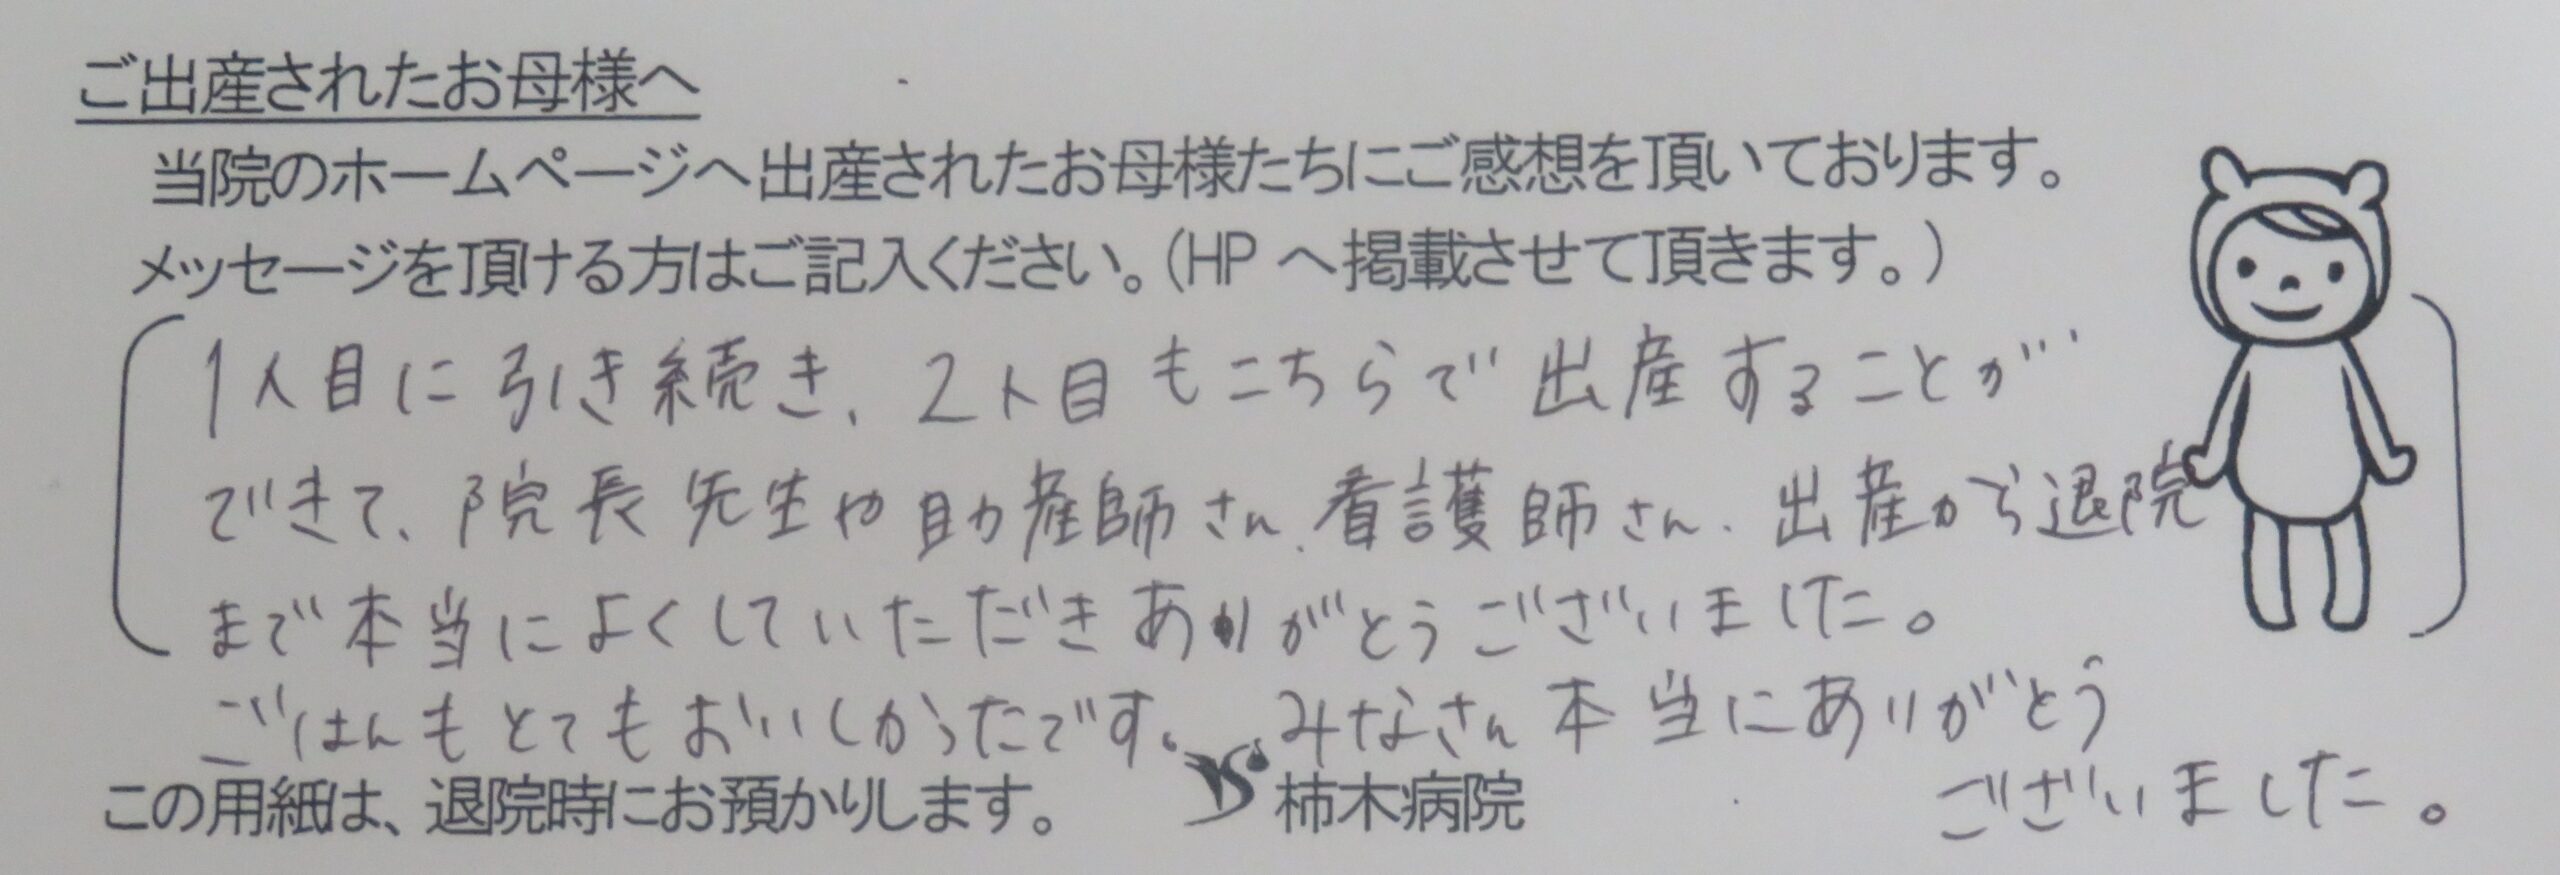 ご出産されたお母様へ
当院のホームページへ出産されたお母様たちにご感想を頂いております。
メッセージを頂ける方はご記入ください。(HP へ掲載させて頂きます。)
1人目に引き続き、2人目もこちらで出産することが
できて、院長先生や助産師さん、看護師さん、出産から退院
まで本当によくしていただきありがとうございました。
ごはんもとてもおいしかったです。みなさん本当にありがとう
ございました。
この用紙は、退院時にお預かりします。 柿木病院